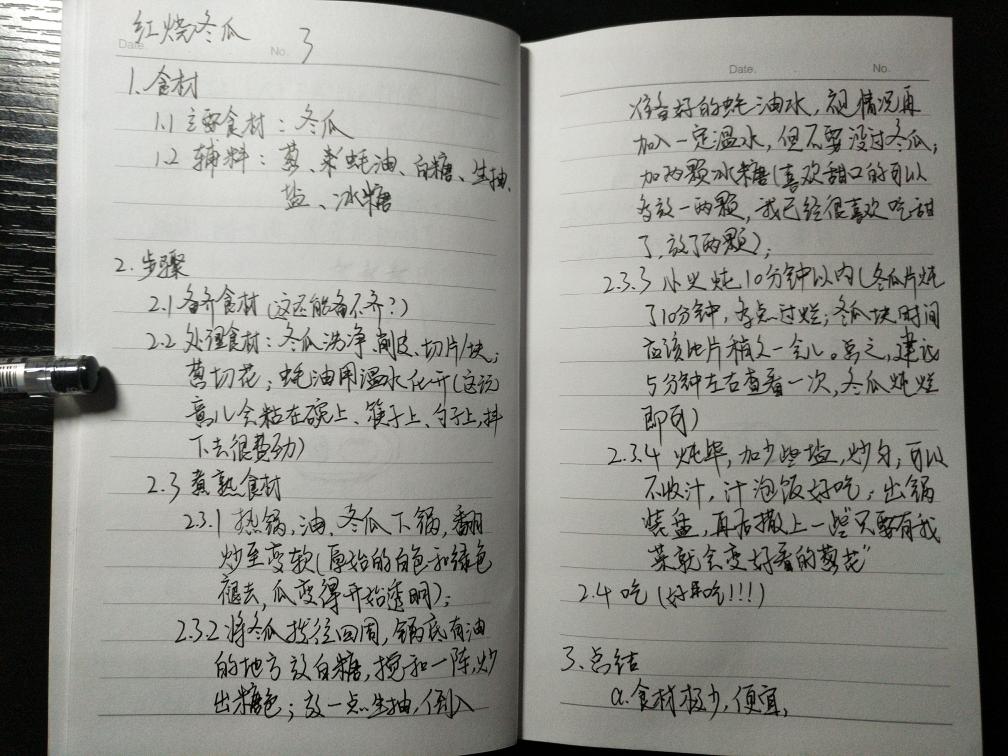 红烧冬瓜
Date. No. 3
1.食材
1.1 主要食材：冬瓜
1.2 辅料：葱、蚝油、白糖、生抽、
盐、冰糖
2.步骤
2.1 备齐食材(这还能备不齐?)
2.2 处理食材：冬瓜洗净、削皮、切片/块；
葱切花；蚝油用温水化开(这玩
意儿会粘在碗上、筷子上、勺子上,抖
下去很费劲)
2.3 煮熟食材
2.3.1 热锅,油、冬瓜下锅,翻
炒至变软(原始的白色和绿色
褪去,瓜变得开始透明)；
2.3.2 将冬瓜拨往四周,锅底有油
的地方放白糖,搅和一阵,炒
出糖色；放一点生抽,倒入
Date. No.
准备好的蚝油水,视情况再
加入一定温水,但不要没过冬瓜；
加两颗冰糖(喜欢甜口的可以
多放一两颗,我已经很喜欢吃甜
了,放了两颗)；
2.3.3 小火炖10分钟以内(冬瓜片炖
了10分钟,有点过烂；冬瓜块时间
应该比片稍久一会儿。总之,建议
5分钟左右查看一次,冬瓜炖烂
即可)
2.3.4 炖毕,加少些盐,炒匀,可以
不收汁,汁泡饭好吃；出锅
装盘,再后撒上一些“只要有我
菜就会变好看的葱花”
2.4 吃(好好吃!!!)
3.总结
a.食材极少,便宜,